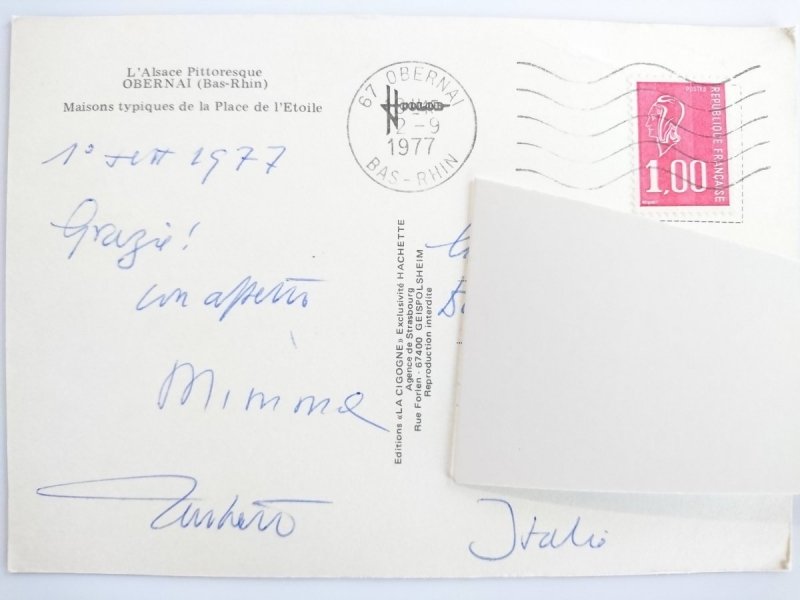 L'Alsace Pittoresque
OBERNAI (Bas-Rhin)
Maisons typiques de la Place de l'Etoile
1° sett 1977
Grazie!
con affetto
Mimma
Umberto
Editions «LA CIGOGNE» Exclusivité HACHETTE
Agence de Strasbourg
Rue Forlen - 67400 GEISPOLSHEIM
Reproduction interdite
67 OBERNAI
2-9
1977
BAS-RHIN
POSTES
REPUBLIQUE FRANÇAISE
1,00
Italia